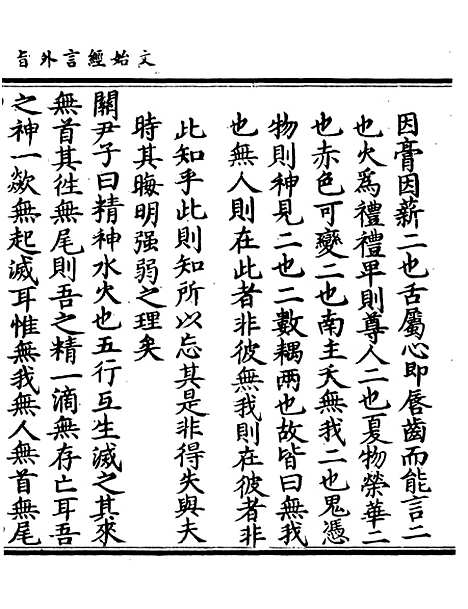 文始經言外旨
因膏因薪二也舌屬心即唇齒而能言二
也火爲禮禮卑則尊人二也夏物榮華二
也赤色可變二也南主夭無我二也鬼憑
物則神見二也二數耦兩也故皆曰無我
也無人則在此者非彼無我則在彼者非
此知乎此則知所以忘其是非得失與夫
時其晦明强弱之理矣
關尹子曰精神水火也五行互生滅之其來
無首其徃無尾則吾之精一滴無存亡耳吾
之神一歘無起滅耳惟無我無人無首無尾